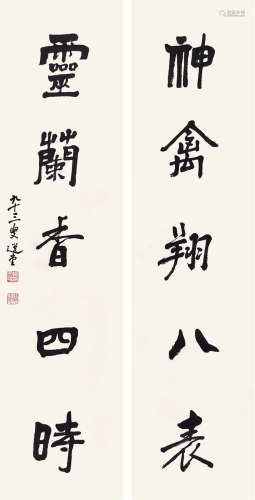 神禽翔八表
靈蘭香四時
九十三叟選堂